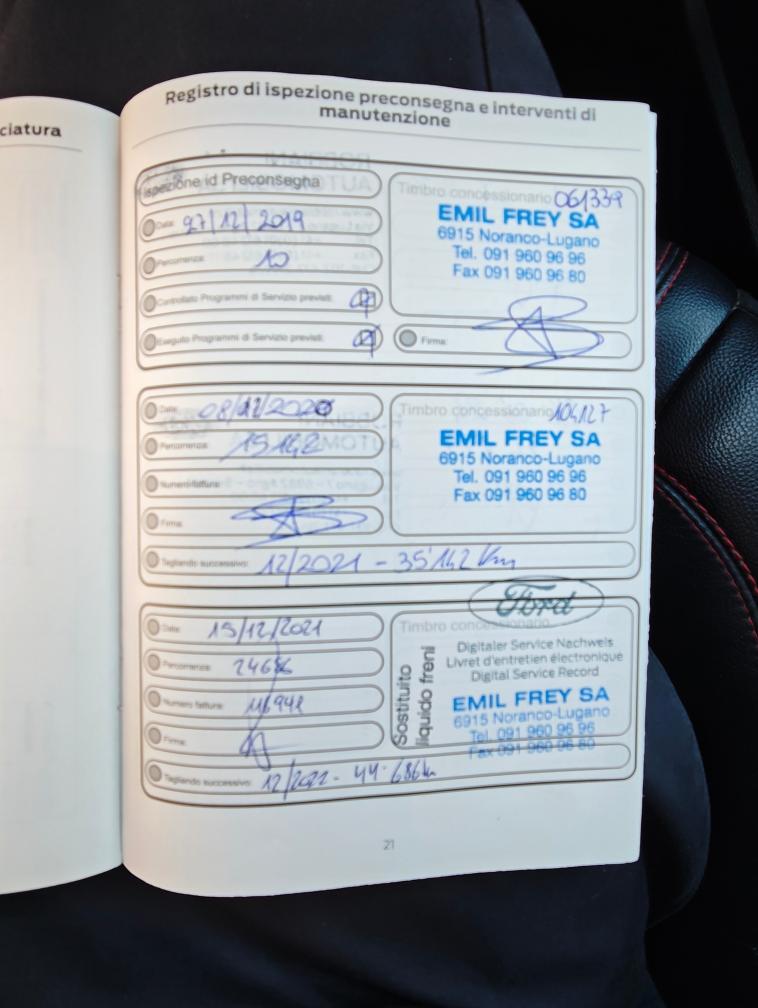 ciatura
Registro di ispezione preconsegna e interventi di
manutenzione
Ispezione id Preconsegna
Data: 27/12/2019
Percorrenza: 10
Controllato Programmi di Servizio previsti:
Eseguito Programmi di Servizio previsti:
Timbro concessionario 061339
EMIL FREY SA
6915 Noranco-Lugano
Tel. 091 960 96 96
Fax 091 960 96 80
Firma:
Data: 08/12/2020
Percorrenza: 15142
Numero fattura:
Firma:
Timbro concessionario 104127
EMIL FREY SA
6915 Noranco-Lugano
Tel. 091 960 96 96
Fax 091 960 96 80
Tagliando successivo: 12/2021 - 35'142 Km
Data: 15/12/2021
Percorrenza: 24686
Numero fattura:
Firma:
Timbro concessionario
Ford
Digitaler Service Nachweis
Livret d'entretien électronique
Digital Service Record
Sostituito
liquido freni
EMIL FREY SA
6915 Noranco-Lugano
Tel. 091 960 96 96
Fax 091 960 96 80
Tagliando successivo: 12/2021 - 44.686km
21